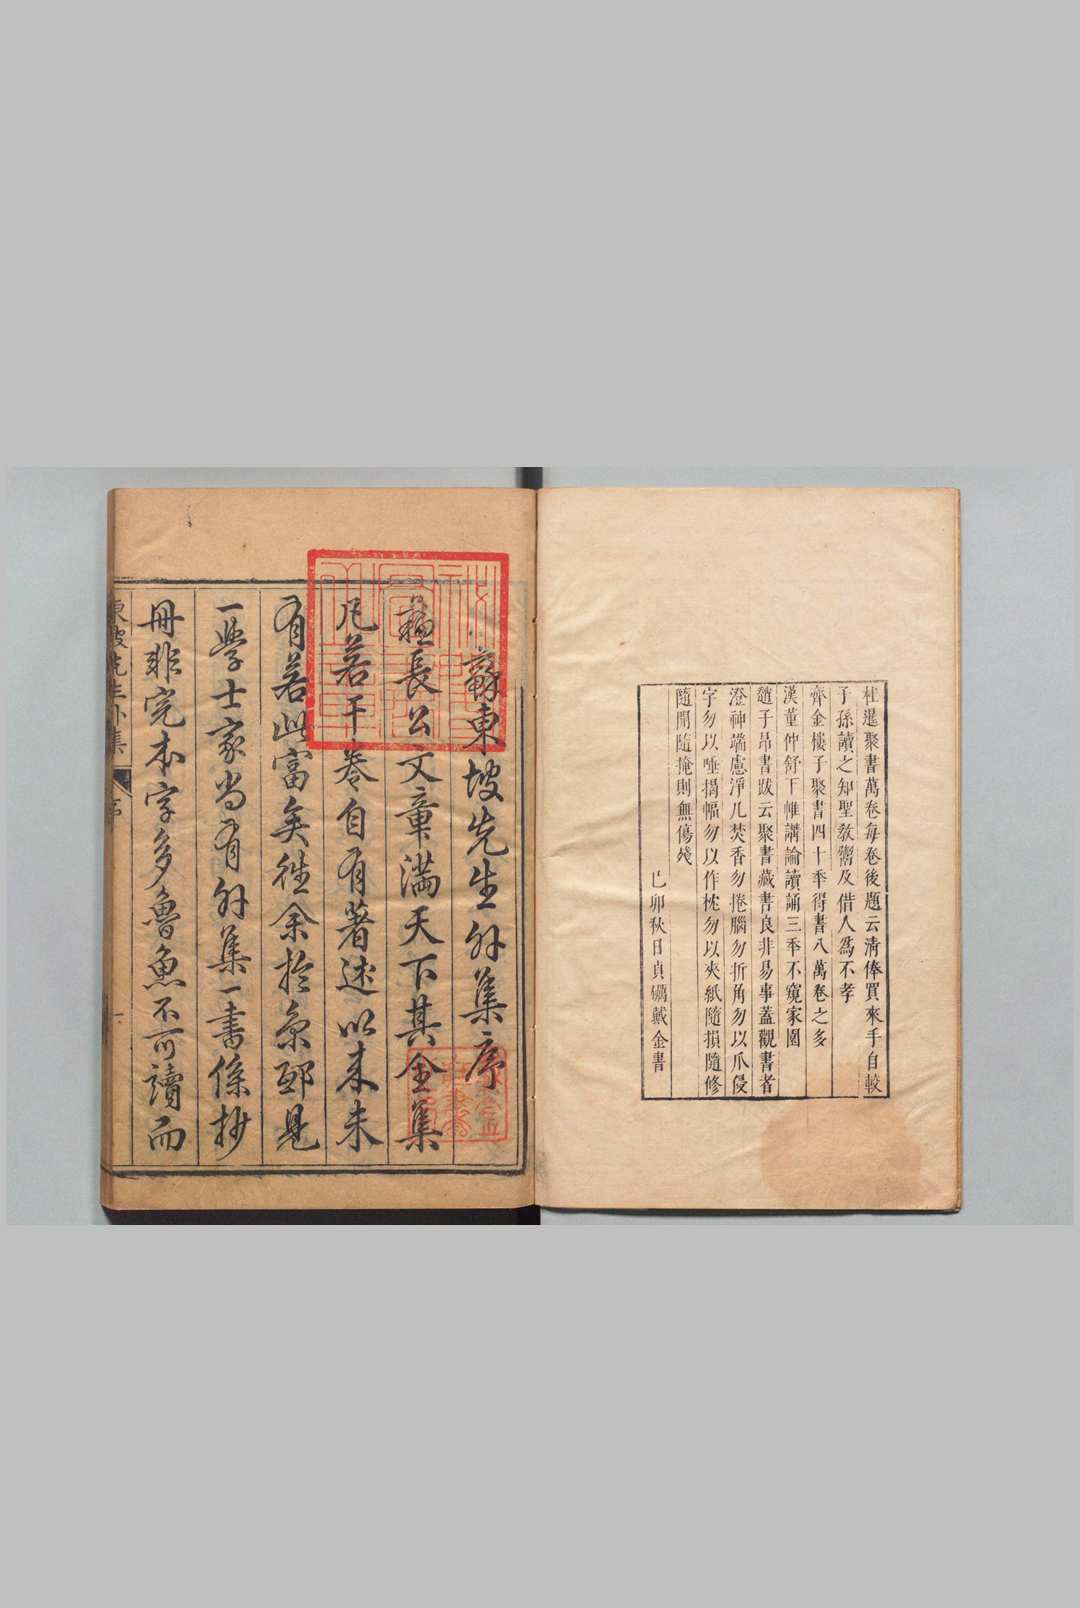 杜暹聚書萬卷每卷後題云清俸買來手自較
子孫讀之知聖教鬻及借人為不孝
齊金樓子聚書四十年得書八萬卷之多
漢董仲舒下帷講論讀誦三年不窺家園
趙子昂書跋云聚書藏書良非易事蓋觀書者
澄神端慮淨几焚香勿捲腦勿折角勿以爪侵
字勿以唾揭幅勿以作枕勿以夾紙隨損隨修
隨開隨掩則無傷殘
己卯秋日貞礪戴金書
蘇東坡先生外集序
蘇長公文章滿天下其全集
凡若干卷自有著述以來未
有若此富矣徃余於京邸見
一學士家尚有外集一書係抄
冊非完本字多魯魚不可讀而
東坡先生外集
序
一